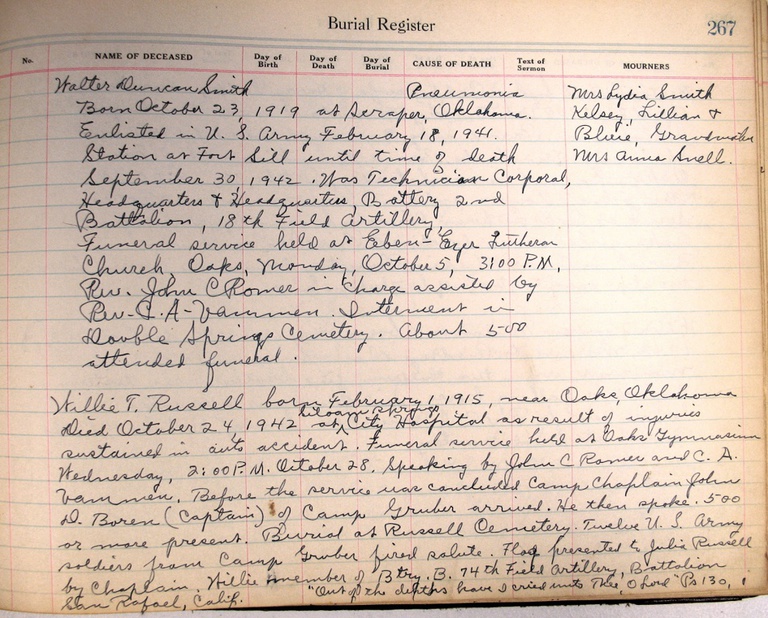 Burial Register
267
No. NAME OF DECEASED Day of Birth Day of Death Day of Burial CAUSE OF DEATH Text of Sermon MOURNERS
Walter Duncan Smith Pneumonia Mrs Lydia Smith
Born October 23, 1919 at Scraper, Oklahoma. Kelsey, Lillian &
Enlisted in U. S. Army February 18, 1941. Billie, Grandmother
Station at Fort Sill until time of death Mrs Anna Snell.
September 30, 1942. Was Technician Corporal,
Headquarters & Headquarters Battery 2nd
Battalion, 18th Field Artillery.
Funeral service held at Eben-Ezer Lutheran
Church, Oaks, Monday, October 5, 3:00 P.M.,
Rev. John C Romer in charge assisted by
Rev. C. A. Vammen. Interment in
Double Springs Cemetery. About 500
attended funeral.
Willie T. Russell born February 1, 1915, near Oaks, Oklahoma
Died October 24, 1942 at Siloam Springs City Hospital as result of injuries
sustained in auto accident. Funeral service held at Oaks Gymnasium
Wednesday, 2:00 P.M. October 28. Speaking by John C Romer and C. A.
Vammen. Before the service was concluded Camp Chaplain John
D. Boren (Captain) of Camp Gruber arrived. He then spoke. 500
or more present. Burial at Russell Cemetery. Twelve U. S. Army
soldiers from Camp Gruber fired salute. Flag presented to Julia Russell
by Chaplain. Willie member of Btry. B. 74th Field Artillery, Battalion
San Rafael, Calif. "Out of the depths have I cried unto Thee, O Lord" Ps 130, 1